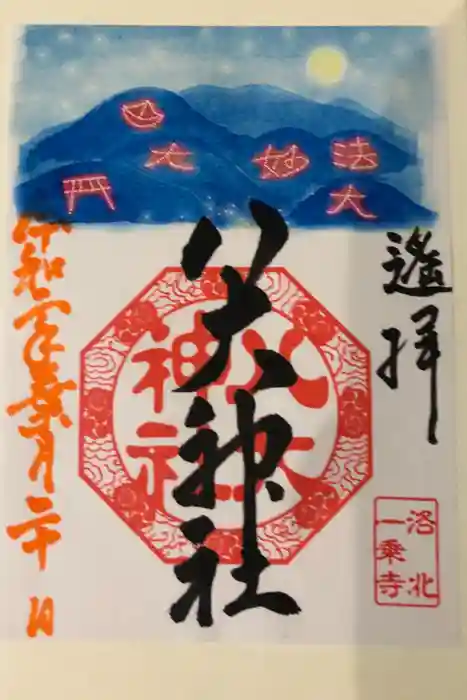 大
妙
法
大
遙拝
八大神社
八大
神社
洛北
一乗寺
令和年葉月二十日